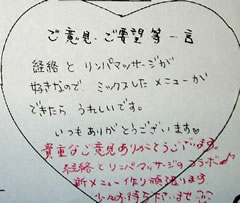 ご意見・ご要望等一言
経絡とリンパマッサージが
好きなので、ミックスしたメニューが
できたら うれしいです。
いつもありがとうございます♡
貴重なご意見ありがとうございます。
経絡とリンパマッサージのコラボ♪
新メニュー作り頑張ります
少々お待ち下さいませ